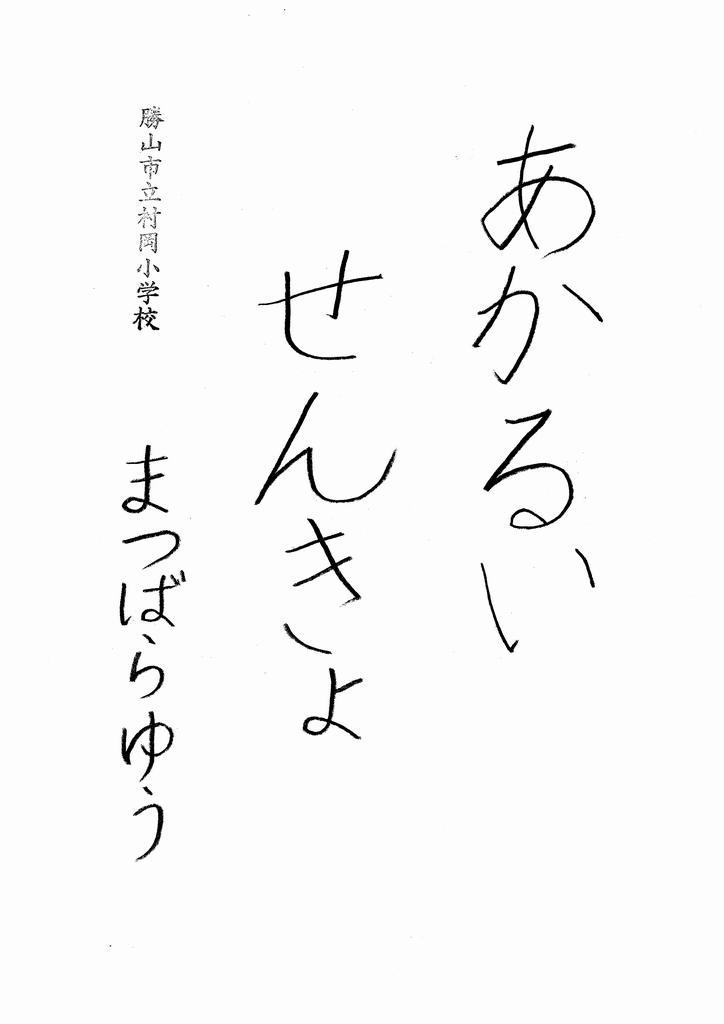 あかるい
せんきょ
勝山市立村岡小学校
まつばらゆう